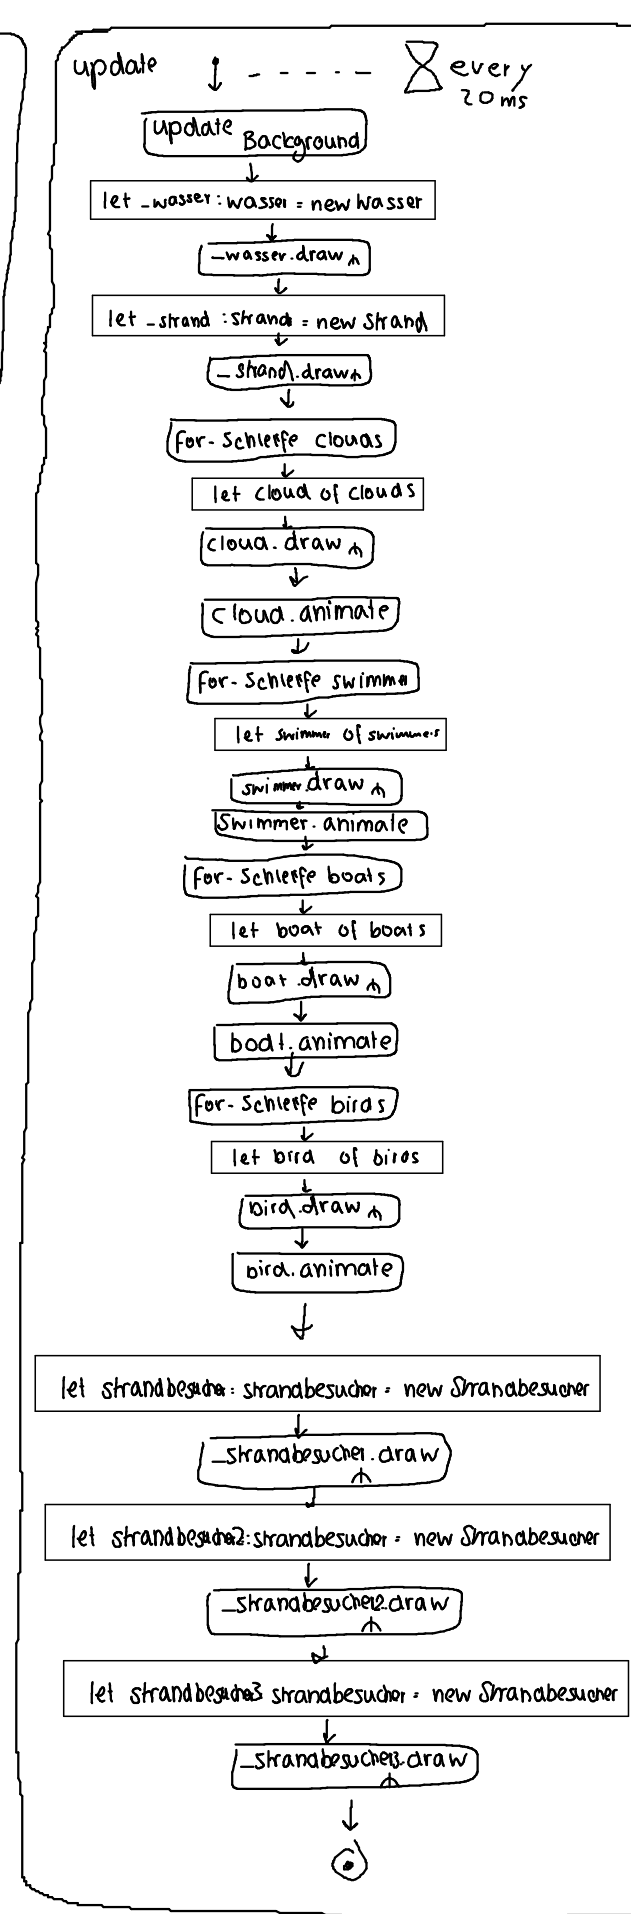 update
every
20ms
update
Background
let _wasser: wasser = new Wasser
_wasser.draw
let _strand : strand = new Strand
_strand.draw
for-Schleife clouds
let cloud of clouds
cloud.draw
cloud.animate
for-Schleife swimmer
let swimmer of swimmers
swimmer.draw
swimmer.animate
for-Schleife boats
let boat of boats
boat.draw
boat.animate
for-Schleife birds
let bird of birds
bird.draw
bird.animate
let strandbesucher: strandbesucher = new Strandbesucher
_strandbesucher.draw
let strandbesucher2: strandbesucher = new Strandbesucher
_strandbesucher2.draw
let strandbesucher3 strandbesucher = new Strandbesucher
_strandbesucher3.draw